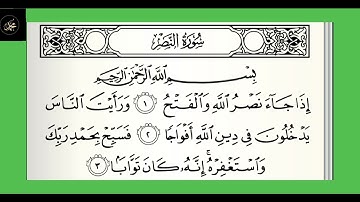 محمد
سُورَةُ النَّصْرِ
بِسْمِ اللَّهِ الرَّحْمَٰنِ الرَّحِيمِ
إِذَا جَاءَ نَصْرُ اللَّهِ وَالْفَتْحُ ١ وَرَأَيْتَ النَّاسَ
يَدْخُلُونَ فِي دِينِ اللَّهِ أَفْوَاجًا ٢ فَسَبِّحْ بِحَمْدِ رَبِّكَ
وَاسْتَغْفِرْهُ ۚ إِنَّهُ كَانَ تَوَّابًا ٣